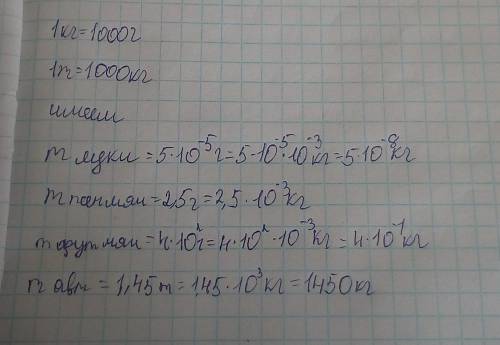 1кг=1000г
1т=1000кг
имеем
m мухи =5·10⁻⁵г=5·10⁻⁵·10⁻³кг=5·10⁻⁸кг
m пен мяч =2,5г=2,5·10⁻³кг
m фут мяч =4·10²г=4·10²·10⁻³кг=4·10⁻¹кг
m авт =1,45т=1,45·10³кг=1450кг